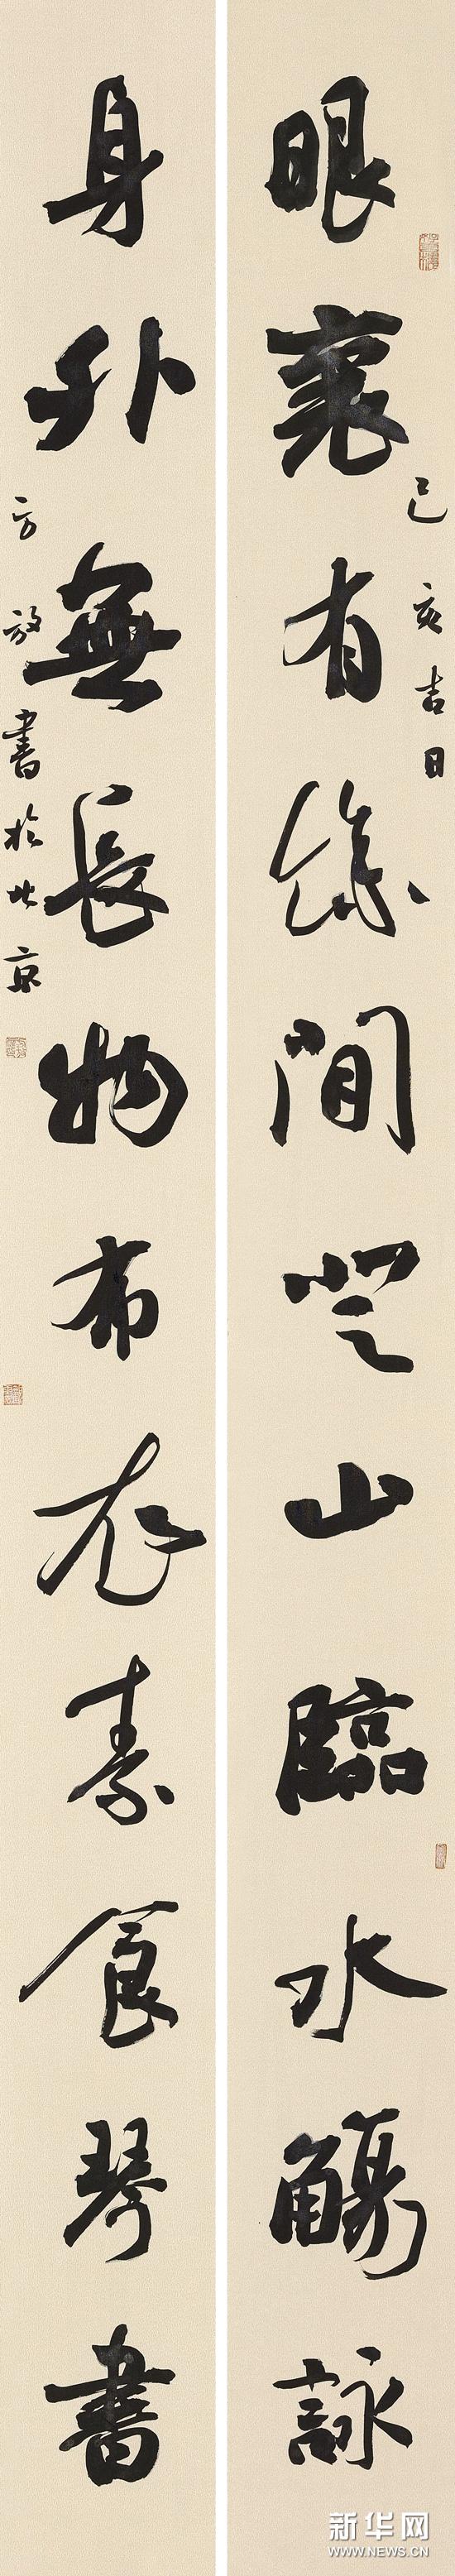 眼裏有餘閒登山臨水觴詠
己亥吉日
身外無長物布衣素食琴書
方放書於北京
新华网
WWW.NEWS.CN